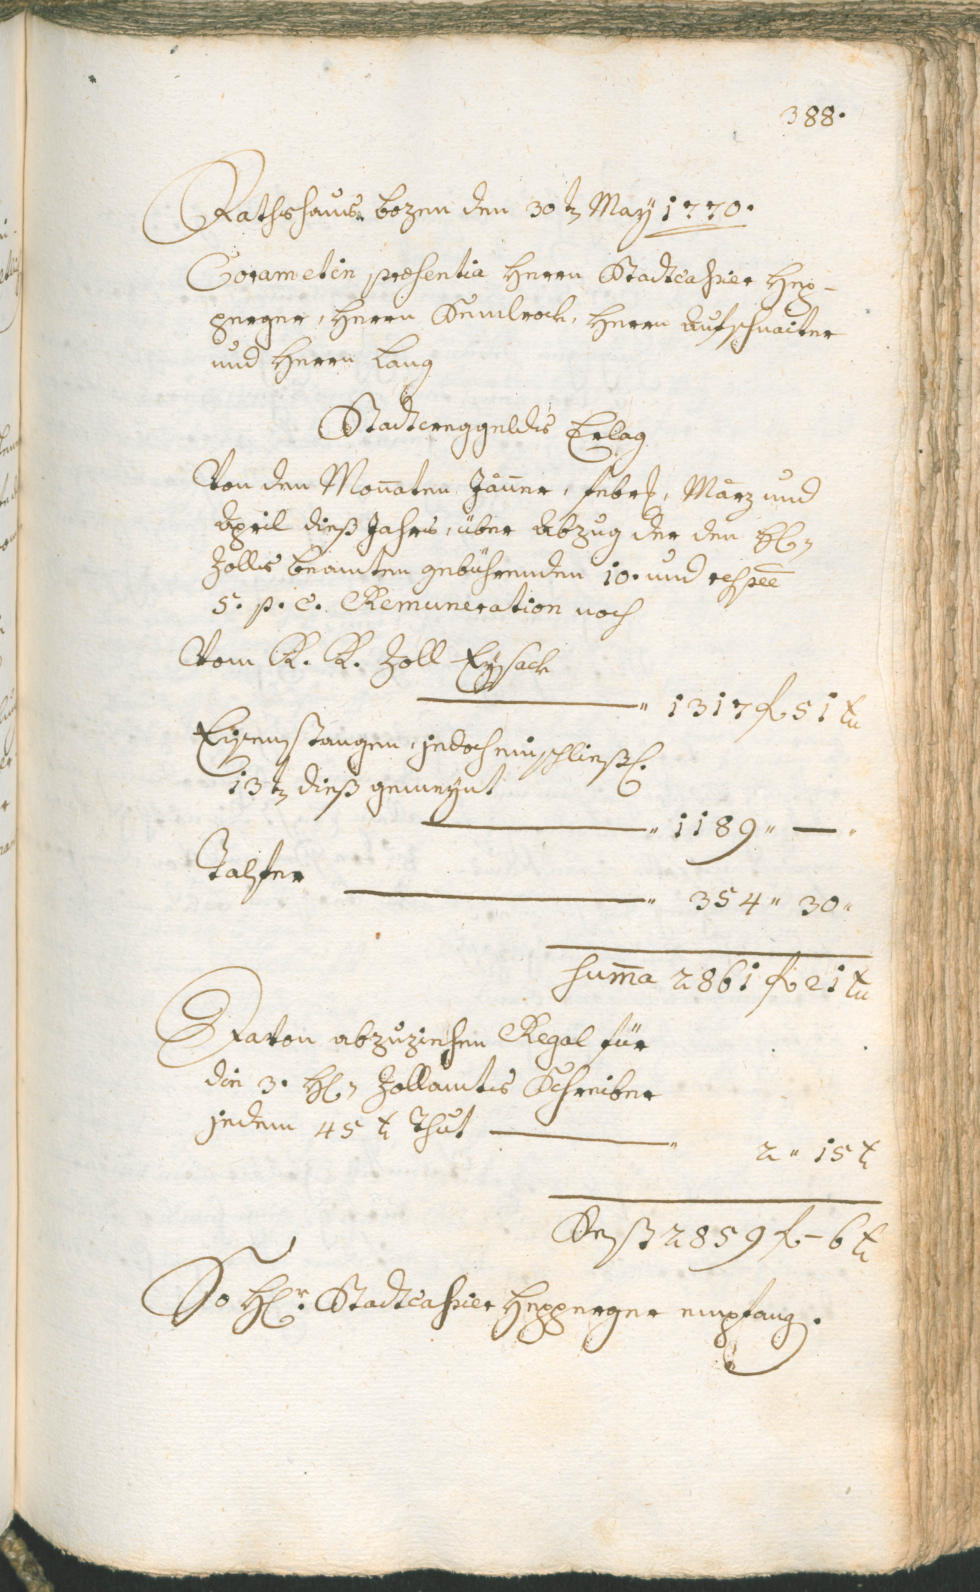 388.
Rathshaus Bozen den 30t May 1770.
Coram et in præsentia Herrn Stadtcassier Hep-
perger, Herrn Remlrock, Herrn Aufschnaiter
und Herrn Lang
Stadtweggeldts Erlag
Von den Monaten Jäner, Febr, März und
April dieß Jahrs, über Abzug der den HH
Zolls Beamten gebührenden 10. und respee
5. p. C. Remuneration noch
Vom K. K. Zoll Eysack
" 1317 f 51 xr
Eisenstangen, jedoch einschließl.
13t dieß gemeynt
" 1189 " — "
Talfer " 354 " 30 "
Summa 2861 f 21 xr
Davon abzuziehen Regal für
die 3. HH Zollamts Schreiber
jedem 45 x Thut " 2 " 15 x
Rest 2859 f - 6 x
So Hr. Stadtcassier Hepperger empfang.